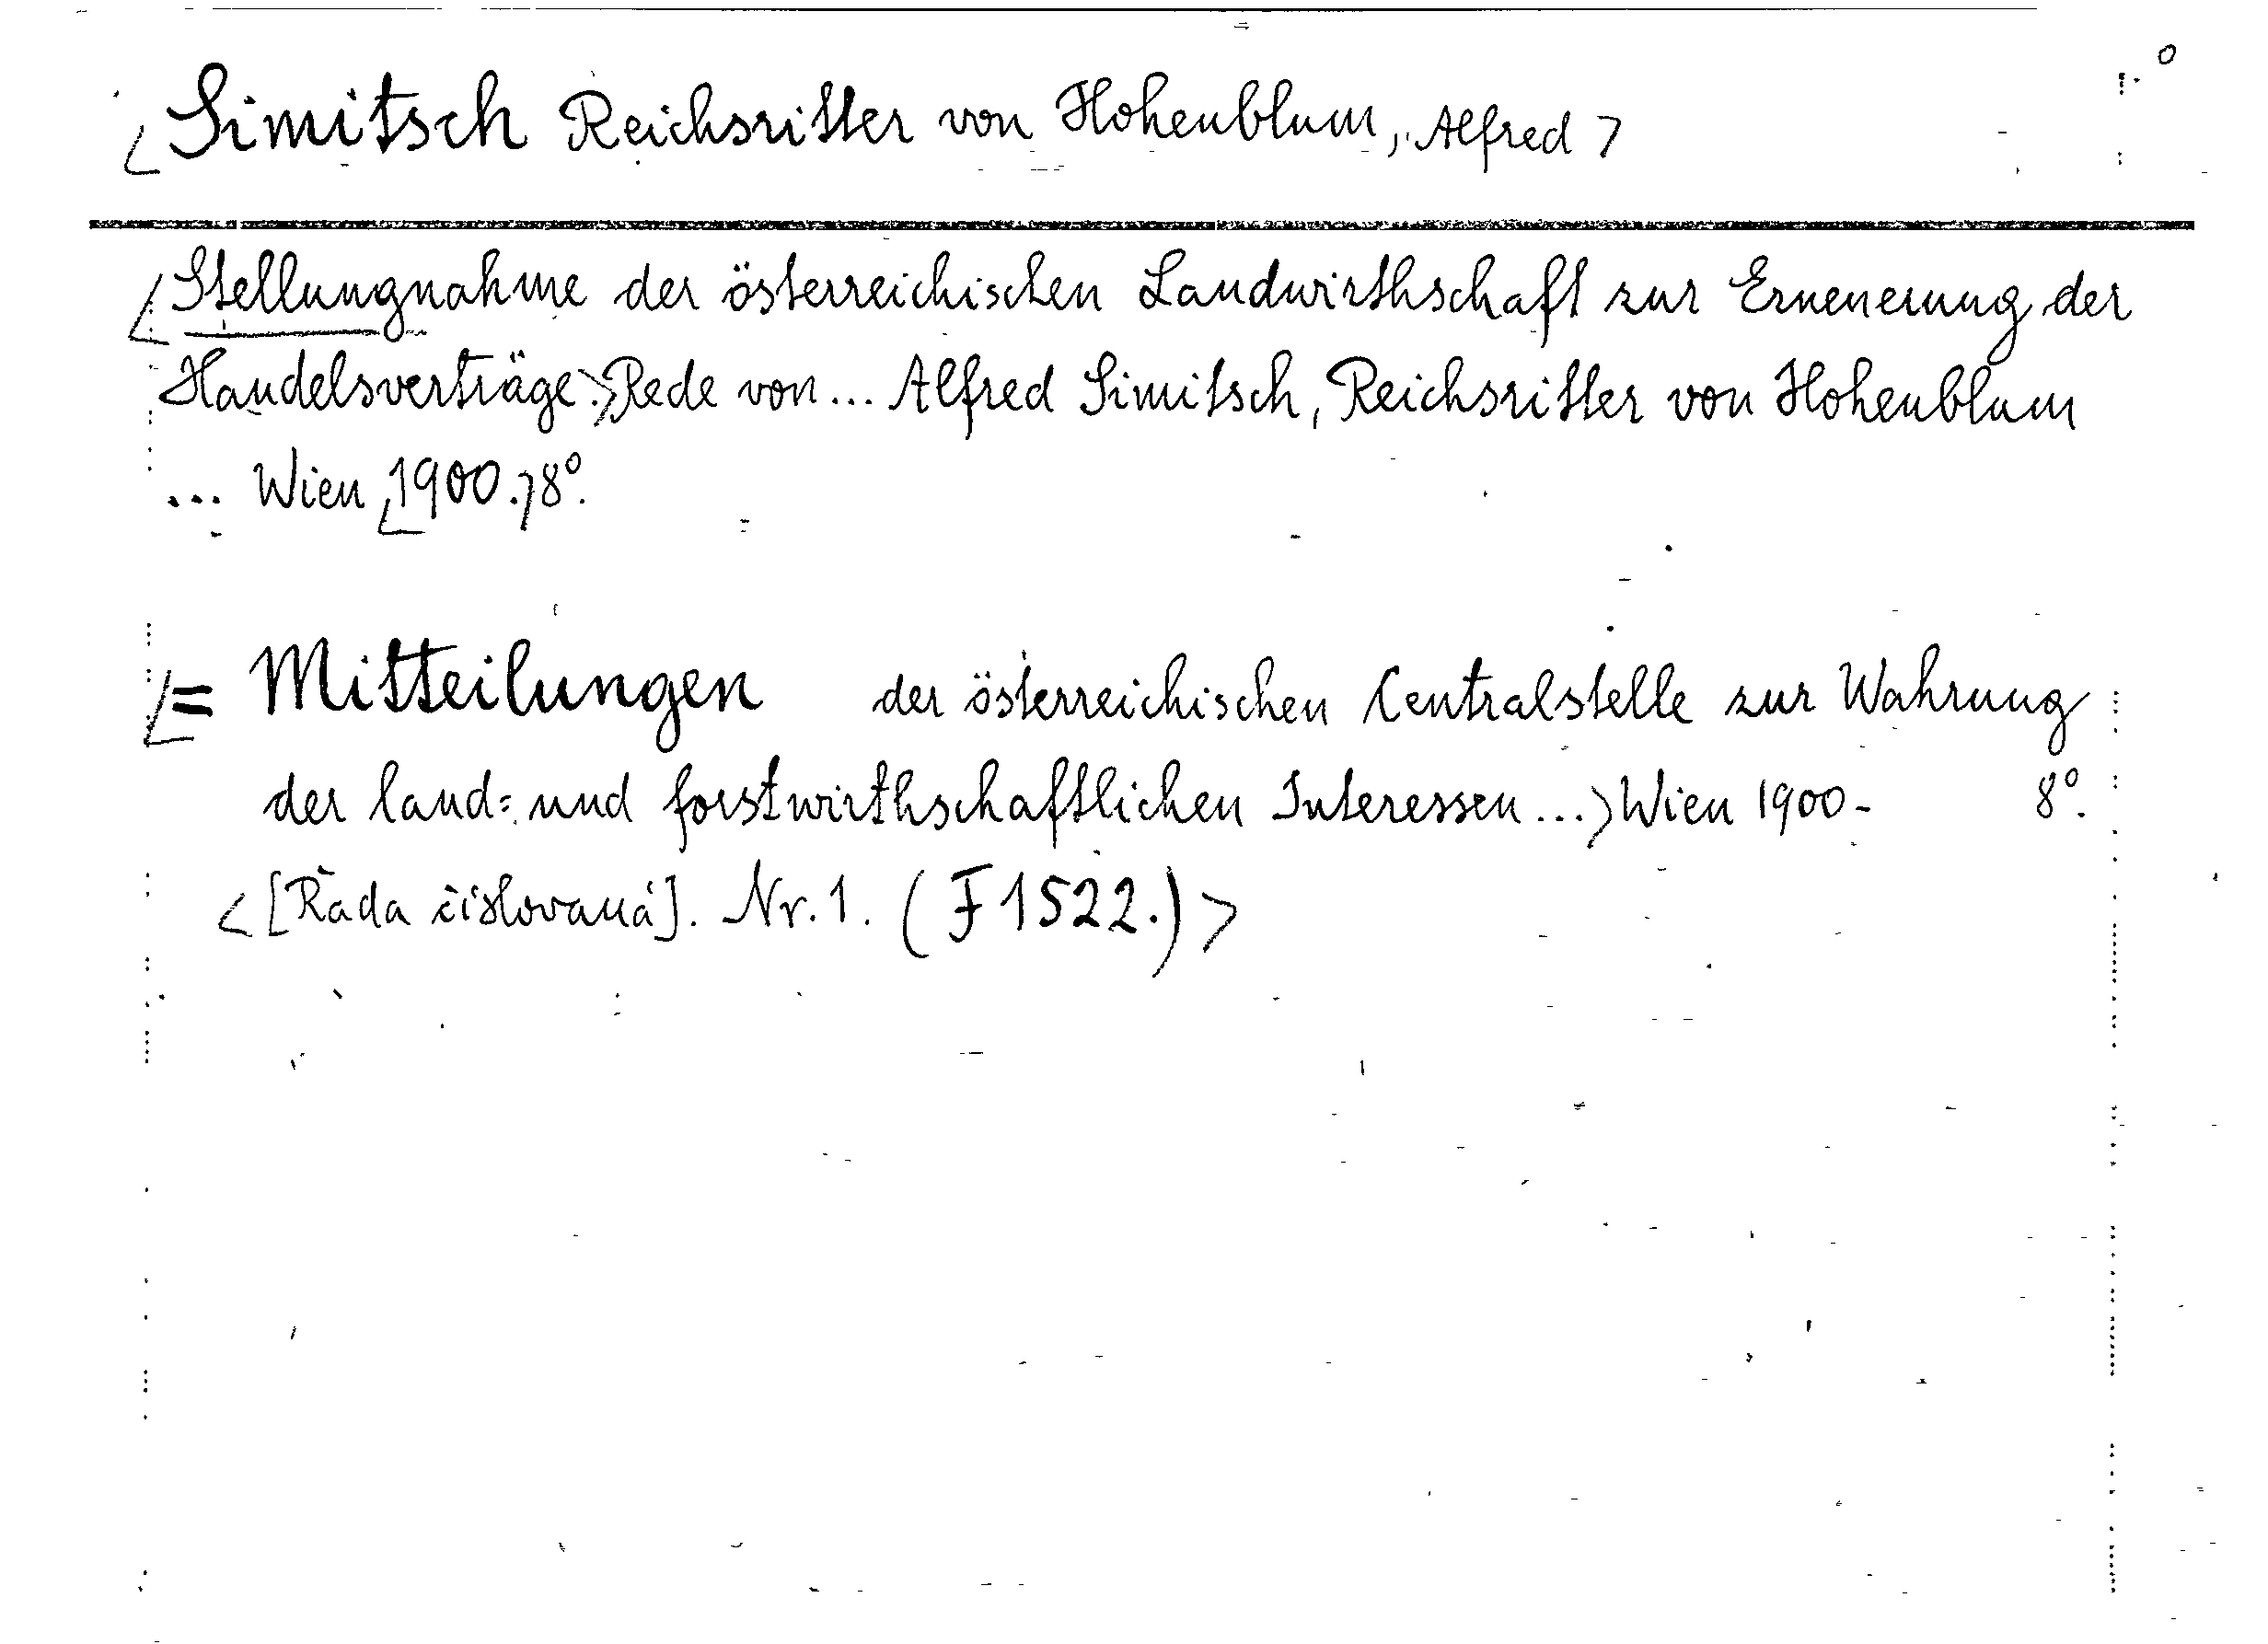 <Simitsch Reichsritter von Hohenblum, Alfred>
<Stellungnahme der österreichischen Landwirthschaft zur Erneuerung der
Handelsverträge.> Rede von... Alfred Simitsch, Reichsritter von Hohenblum
... Wien <1900.> 8°.
<= Mitteilungen der österreichischen Centralstelle zur Wahrung
der land= und forstwirthschaftlichen Interessen...> Wien 1900- 8°.
<[Řada číslovaná]. Nr. 1. (F 1522.)>